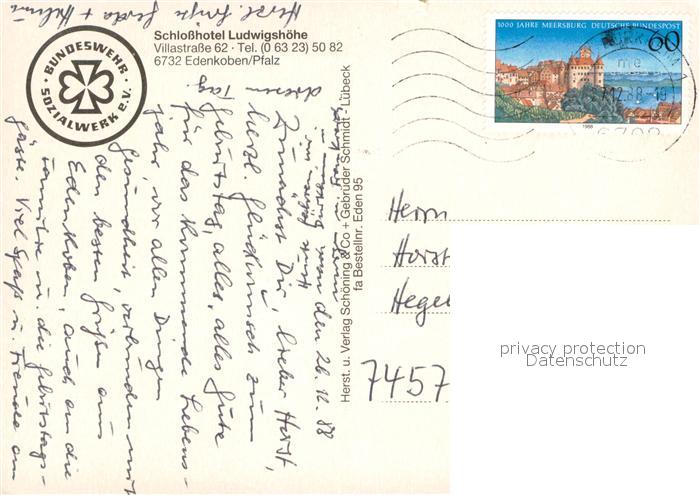 Schloßhotel Ludwigshöhe
Villastraße 62 · Tel. (0 63 23) 50 82
6732 Edenkoben/Pfalz
BUNDESWEHR-
SOZIALWERK e.V.
1000 JAHRE MEERSBURG DEUTSCHE BUNDESPOST
60
1988
12.88-19
Herst. u. Verlag Schöning & Co + Gebrüder Schmidt · Lübeck
fa Bestellnr. Eden 95
den 26.12.88
Zunächst Dir, lieber Horst,
herzl. Glückwunsch zum
Geburtstag, alles, alles Gute
für das kommende Lebens-
jahr, vor allen Dingen
Gesundheit, verbunden mit
den besten Grüßen aus
Edenkoben, auch an die
Familie u. die Geburtstags-
gäste. Viel Spaß u. Freude an
diesem Tag
Herzl. Grüße Gerda + Helmut
Herrn
Horst
Hegel
7457
privacy protection
Datenschutz